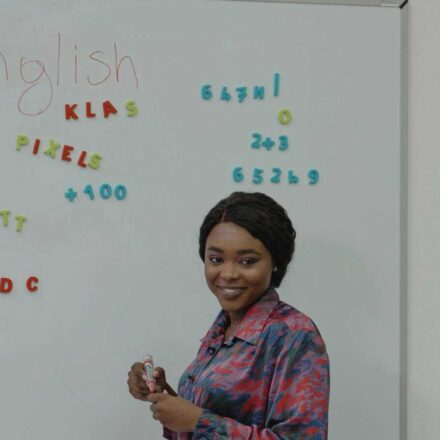 English
KLAS
PIXELS
+100
TT
DC
647M|
O
2+3
65249